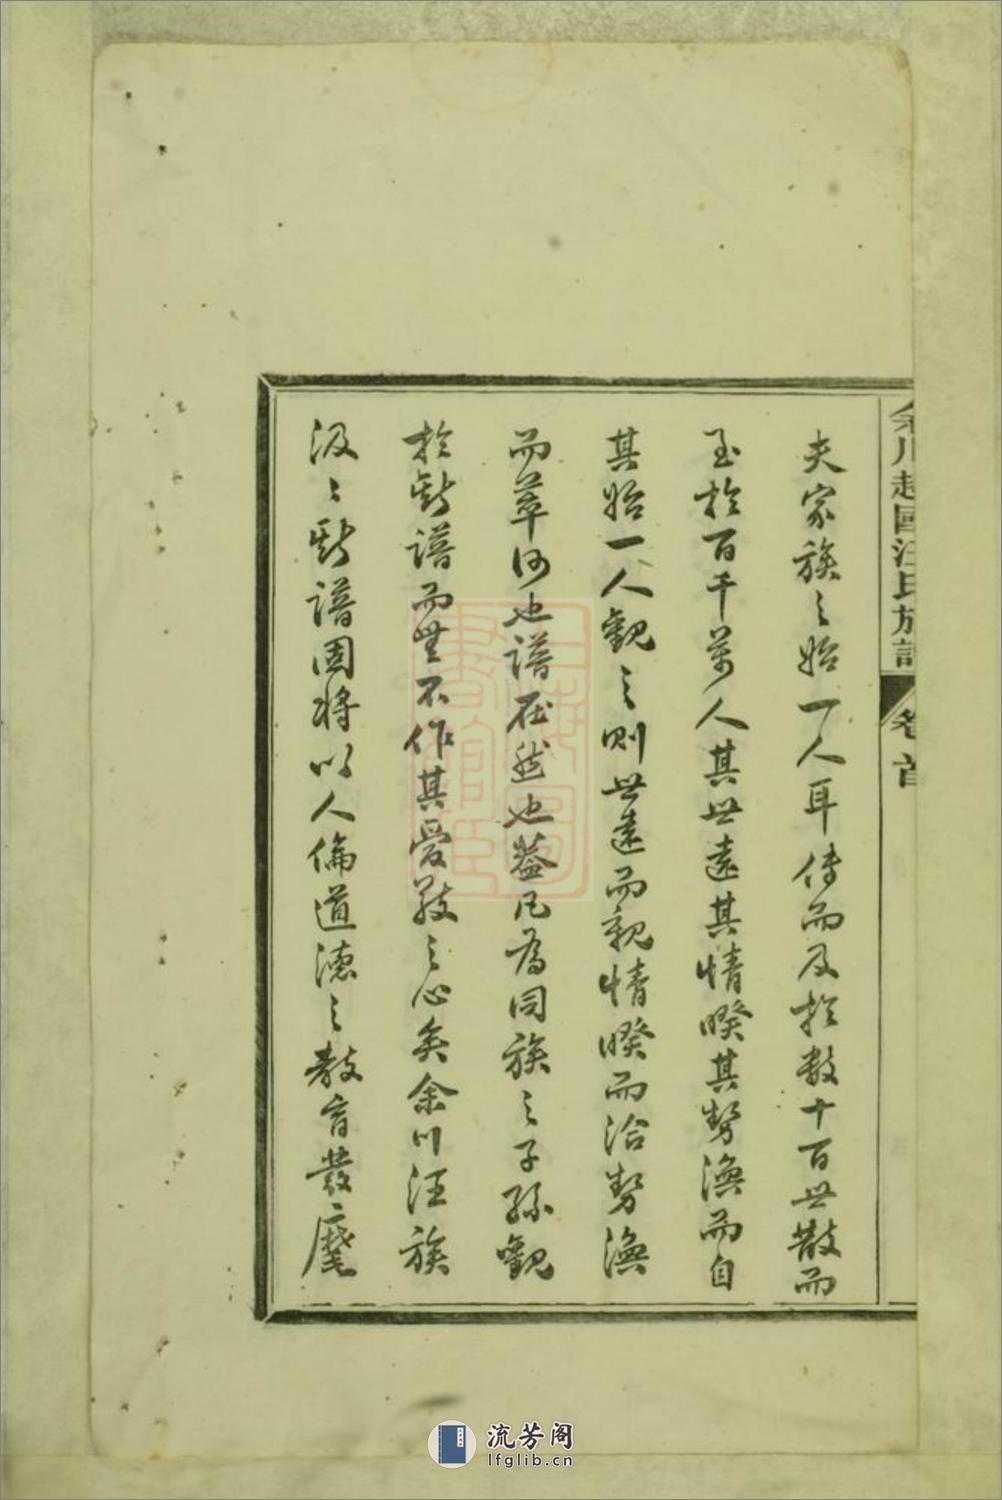 余川越國汪氏族譜
卷首
夫家族之始一人耳傳而及於數十百世散而
至於百千萬人其世遠其情暌其勢渙而自
其始一人觀之則世遠而親情暌而洽勢渙
而萃何也譜在然也蓋凡為同族之子孫觀
於斯譜而無不作其愛敬之心矣余川汪族
汲〻斯譜固將以人倫道德之教育叢麾
流芳阁
lfglib.cn